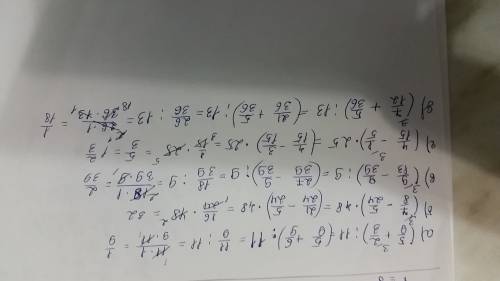 а) (5/9 + 2/3) : 11 = (5/9 + 6/9) : 11 = 11/9 : 11 = 11·1/9·11 = 1/9
б) (7/8 − 5/24) · 48 = (21/24 − 5/24) · 48 = 16/24 · 48 = 32
в) (9/13 − 9/39) : 9 = (27/39 − 9/39) : 9 = 18/39 : 9 = 18·1/39·9 = 2/39
г) (4/15 − 1/5) · 25 = (4/15 − 3/15) · 25 = 1/15 · 25 = 5/3 = 1 2/3
д) (7/12 + 5/36) : 13 = (21/36 + 5/36) : 13 = 26/36 : 13 = 26·1/36·13 = 1/18